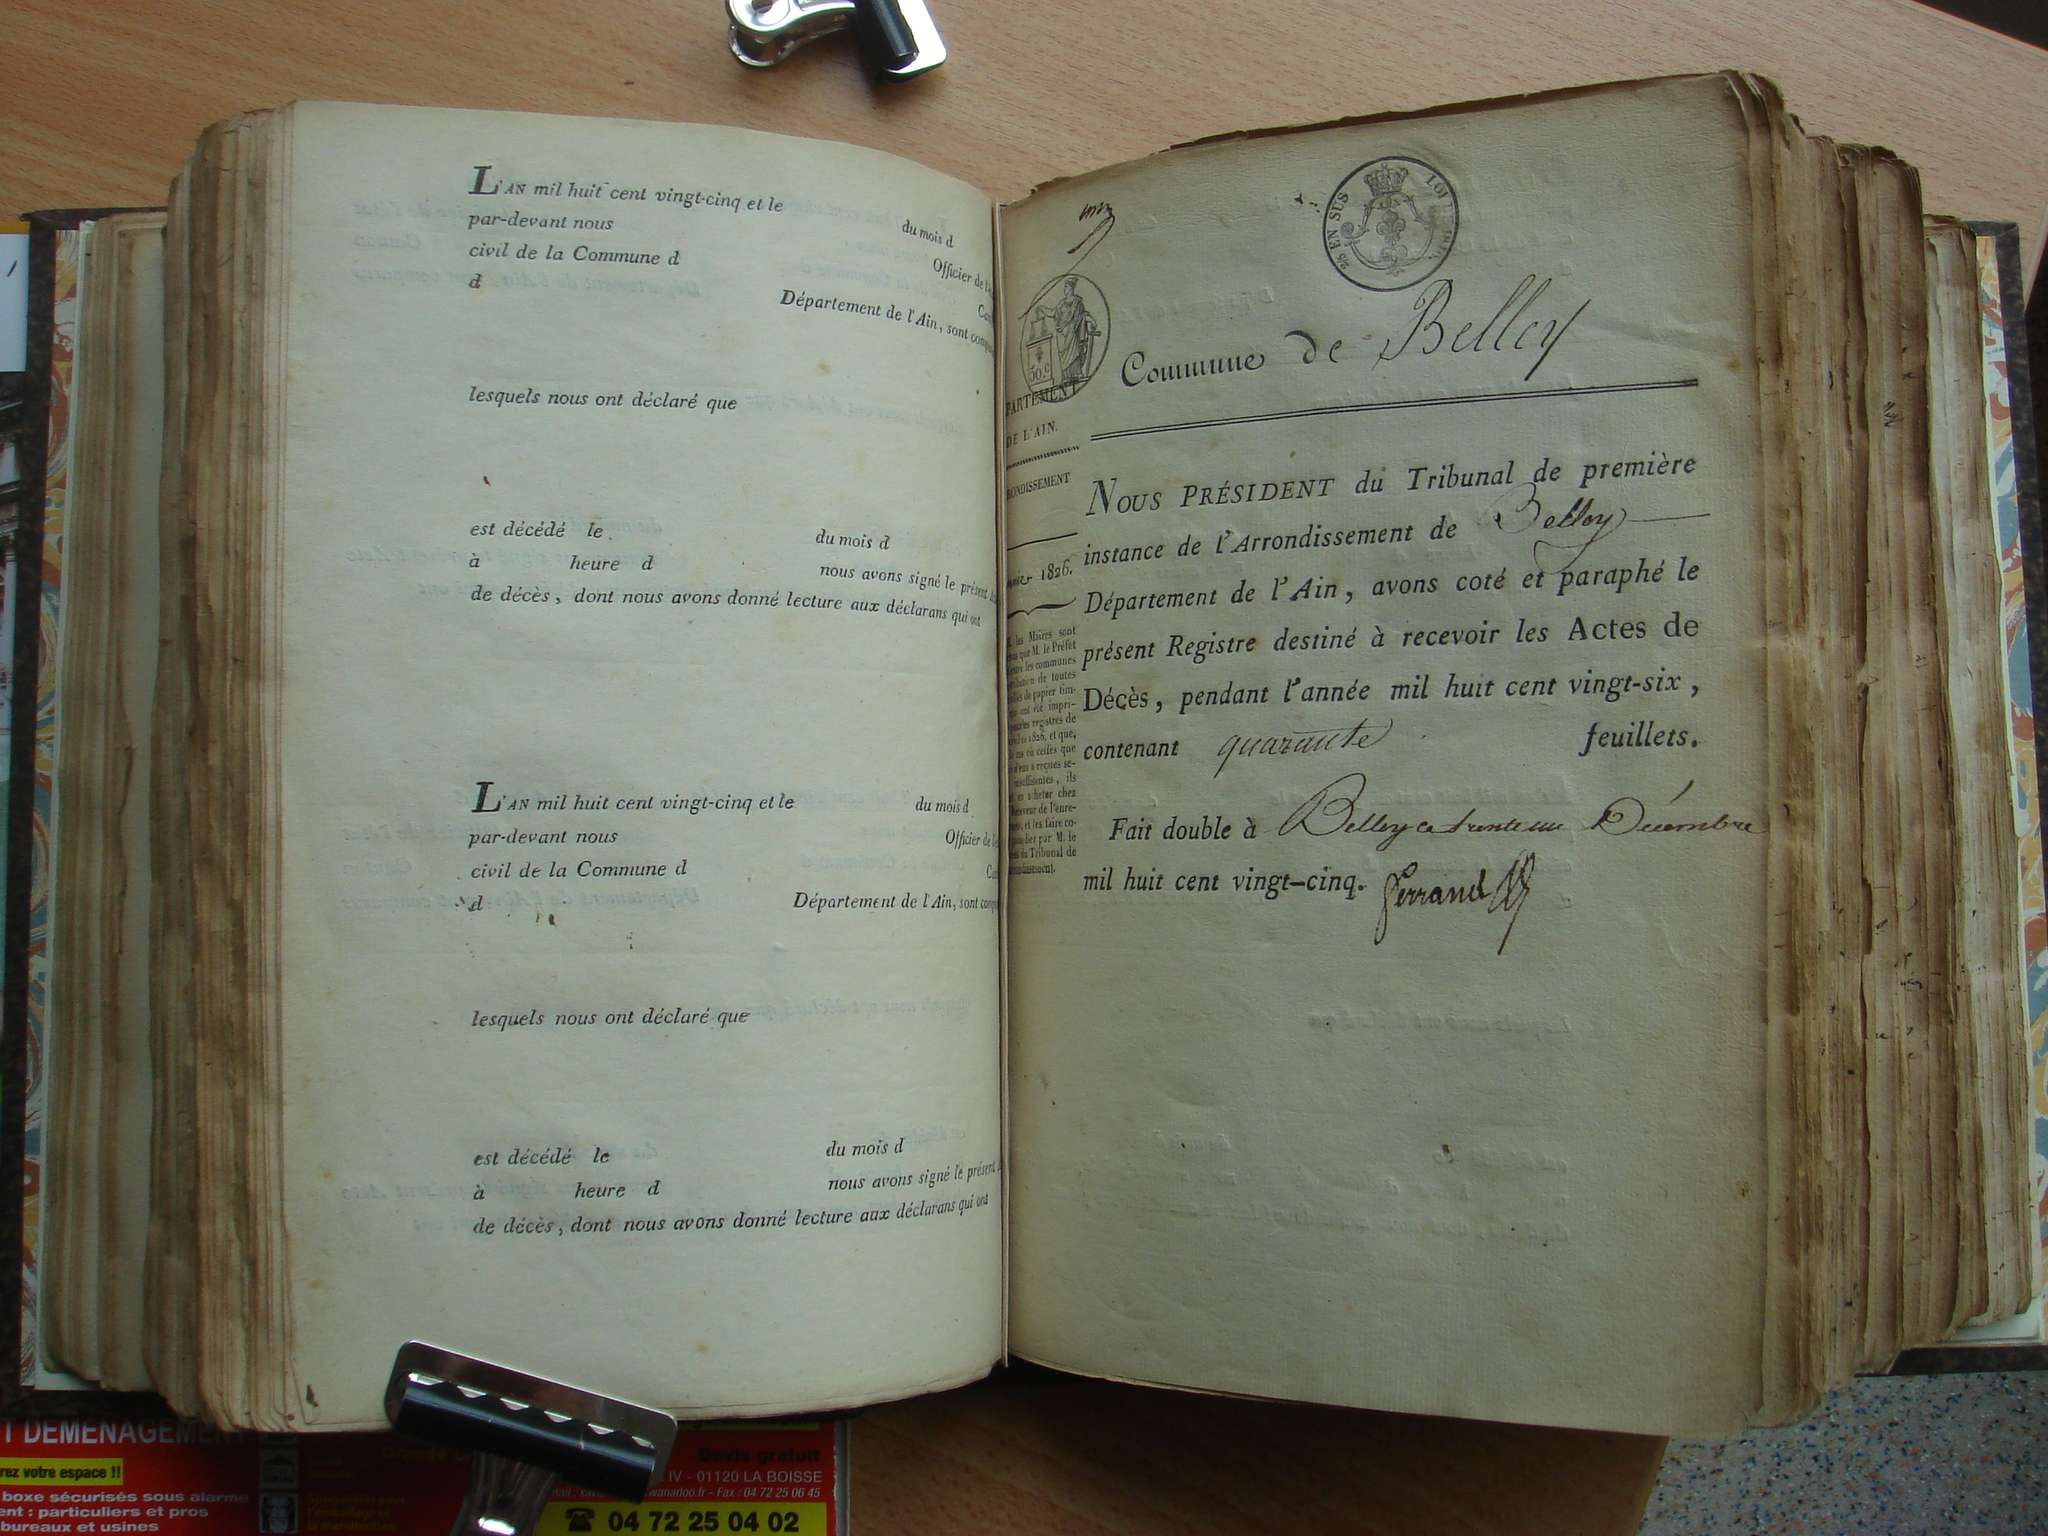 L'AN mil huit cent vingt-cinq et le du mois d
par-devant nous Officier de l'
civil de la Commune d Can
d Département de l'Ain, sont comp
lesquels nous ont déclaré que
est décédé le du mois d
à heure d nous avons signé le présent
de décès, dont nous avons donné lecture aux déclarans qui ont
L'AN mil huit cent vingt-cinq et le du mois d
par-devant nous Officier de l'
civil de la Commune d Can
d Département de l'Ain, sont comp
lesquels nous ont déclaré que
est décédé le du mois d
à heure d nous avons signé le présent
de décès, dont nous avons donné lecture aux déclarans qui ont
EN SUS LOI
50 C
Commune de Belley
PARTEMENT
DE L'AIN.
RONDISSEMENT
1826.
les Maires sont
que M. le Préfet
les communes
de toutes
de papier tim-
ont été impri-
les registres de
1826, et que,
où celles que
reçues se-
insuffisantes, ils
acheter chez
Receveur de l'enre-
et les faire co-
par M. le
du Tribunal de
NOUS PRÉSIDENT du Tribunal de première
instance de l'Arrondissement de Belley
Département de l'Ain, avons coté et paraphé le
présent Registre destiné à recevoir les Actes de
Décès, pendant l'année mil huit cent vingt-six,
contenant quarante feuillets.
Fait double à Belley ce trente un Décembre
mil huit cent vingt-cinq. Ferrand
T DEMENAGEMENT
rez votre espace !!
boxe sécurisés sous alarme
ent : particuliers et pros
bureaux et usines
Devis gratuit
IV - 01120 LA BOISSE
wanadoo.fr - Fax : 04 72 25 06 45
04 72 25 04 02